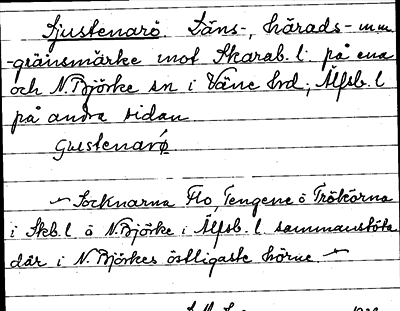 Sjustenarö Läns-, härads- m.m.
-gränsmärke mot Skarab. l. på ena
och N. Björke sn i Väne hrd, Älfsb. l
på andra sidan
Gustenarö
Socknarna Flo, Tengene o Trökörna
i Skb. l o N. Björke i Älfsb. l sammanstöta
där i N. Björkes östligaste hörne